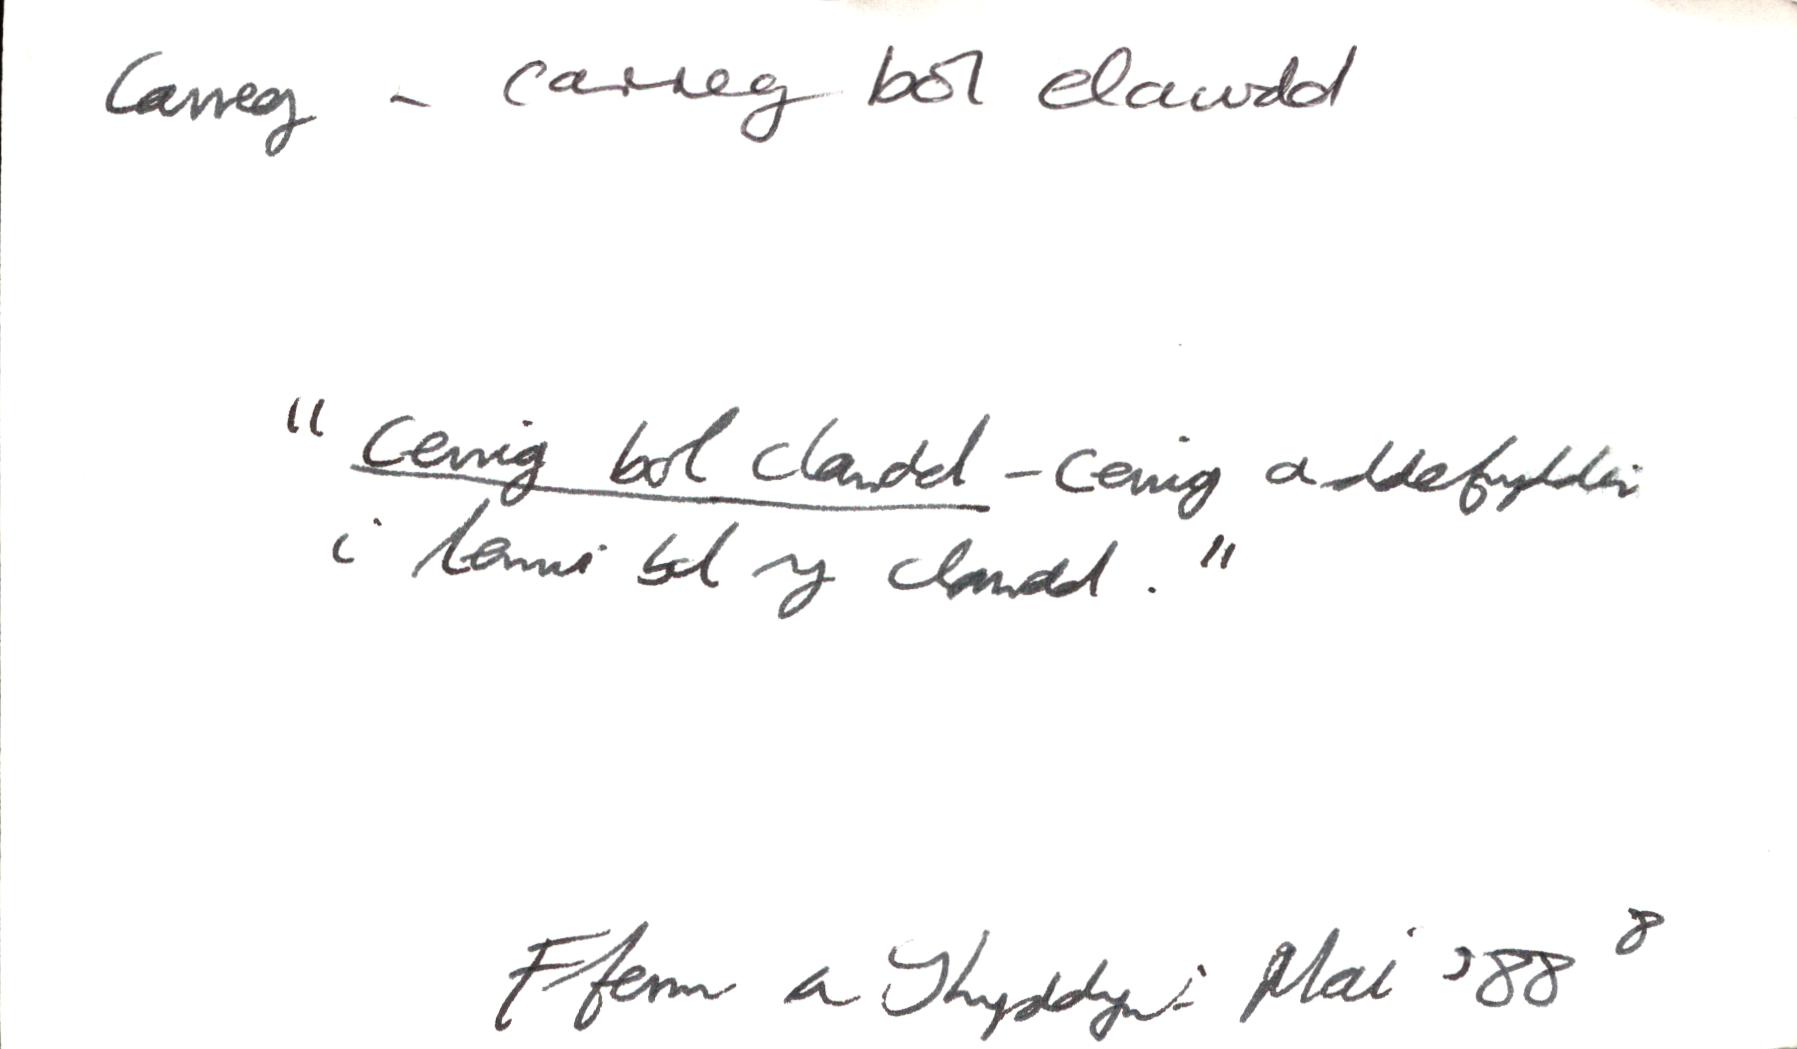 Carreg - carreg bôl clawdd
"Cerrig bol clawdd - cerrig a ddefnyddir
i lenwi bol y clawdd."
Fferm a Thyddyn: Mai '88 8